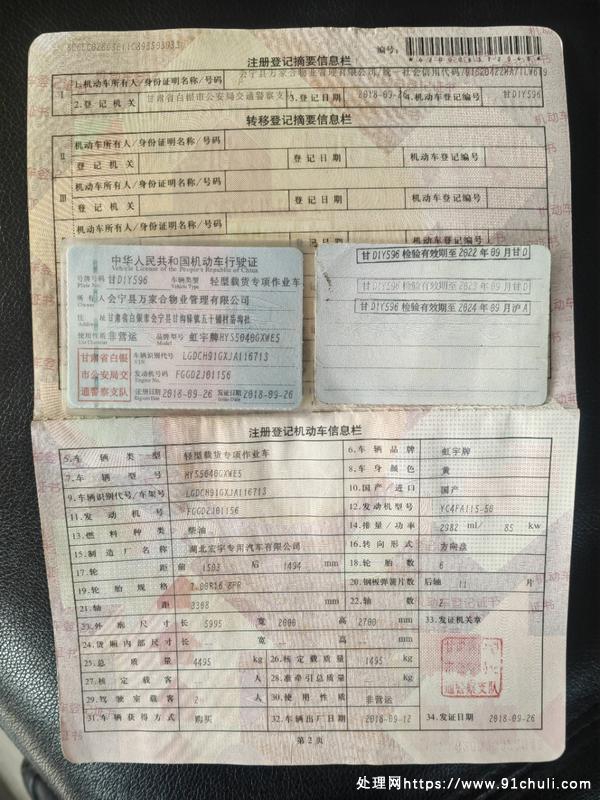 注册登记摘要信息栏
编号:
I 1.机动车所有人/身份证明名称/号码 会宁县万家合物业管理有限公司/统一社会信用代码/
2.登记机关 甘肃省白银市公安局交通警察支 3.登记日期 2018-09-26 4.机动车登记编号 甘DIY596
转移登记摘要信息栏
II 机动车所有人/身份证明名称/号码
登记机关 登记日期 机动车登记编号
III 机动车所有人/身份证明名称/号码
登记机关 登记日期 机动车登记编号
机动车所有人/身份证明名称/号码
中华人民共和国机动车行驶证
Vehicle License of the People's Republic of China
号牌号码 甘DIY596 车辆类型 轻型载货专项作业车
Plate No. Vehicle Type
所有人 会宁县万家合物业管理有限公司
Owner
住址 甘肃省白银市会宁县甘沟驿镇五十铺村
Address
使用性质 非营运 品牌型号 虹宇牌HYS5040GXWE5
Use Character Model
甘肃省白银市公安局交通警察支队
车辆识别代号 LGDCH91GXJA116713
VIN
发动机号码 FGGD2J01156
Engine No.
注册日期 2018-09-26 发证日期 2018-09-26
Register Date Issue Date
甘DIY596 检验有效期至2022年09月甘D
甘DIY596 检验有效期至2023年09月
甘DIY596 检验有效期至2024年09月沪A
注册登记机动车信息栏
5.车辆类型 轻型载货专项作业车 6.车辆品牌 虹宇牌
7.车辆型号 HYS5040GXWE5 8.车身颜色 黄
9.车辆识别代号/车架号 LGDCH91GXJA116713 10.国产/进口 国产
11.发动机号 FGGD2J01156 12.发动机型号 YC4FA115-50
13.燃料种类 柴油 14.排量/功率 2982 ml/ 85 kw
15.制造厂名称 湖北宏宇专用汽车有限公司 16.转向形式 方向盘
17.轮距 前 1503 后 1494 mm 18.轮胎数 6
19.轮胎规格 7.00R16 8PR 20.钢板弹簧片数 后轴 11 片
21.轴距 3308 mm 22.轴数 2
23.外廓尺寸 长 5995 宽 2000 高 2700 mm 33.发证机关章
24.货厢内部尺寸 长 宽 高 mm
25.总质量 4495 kg 26.核定载质量 1495 kg
27.核定载客 人 28.准牵引总质量 kg
29.驾驶室载客 2 人 30.使用性质 非营运
通警察支队
31.车辆获得方式 购买 32.车辆出厂日期 2018-09-12 34.发证日期 2018-09-26
第2页
处理网https://www.91chuli.com